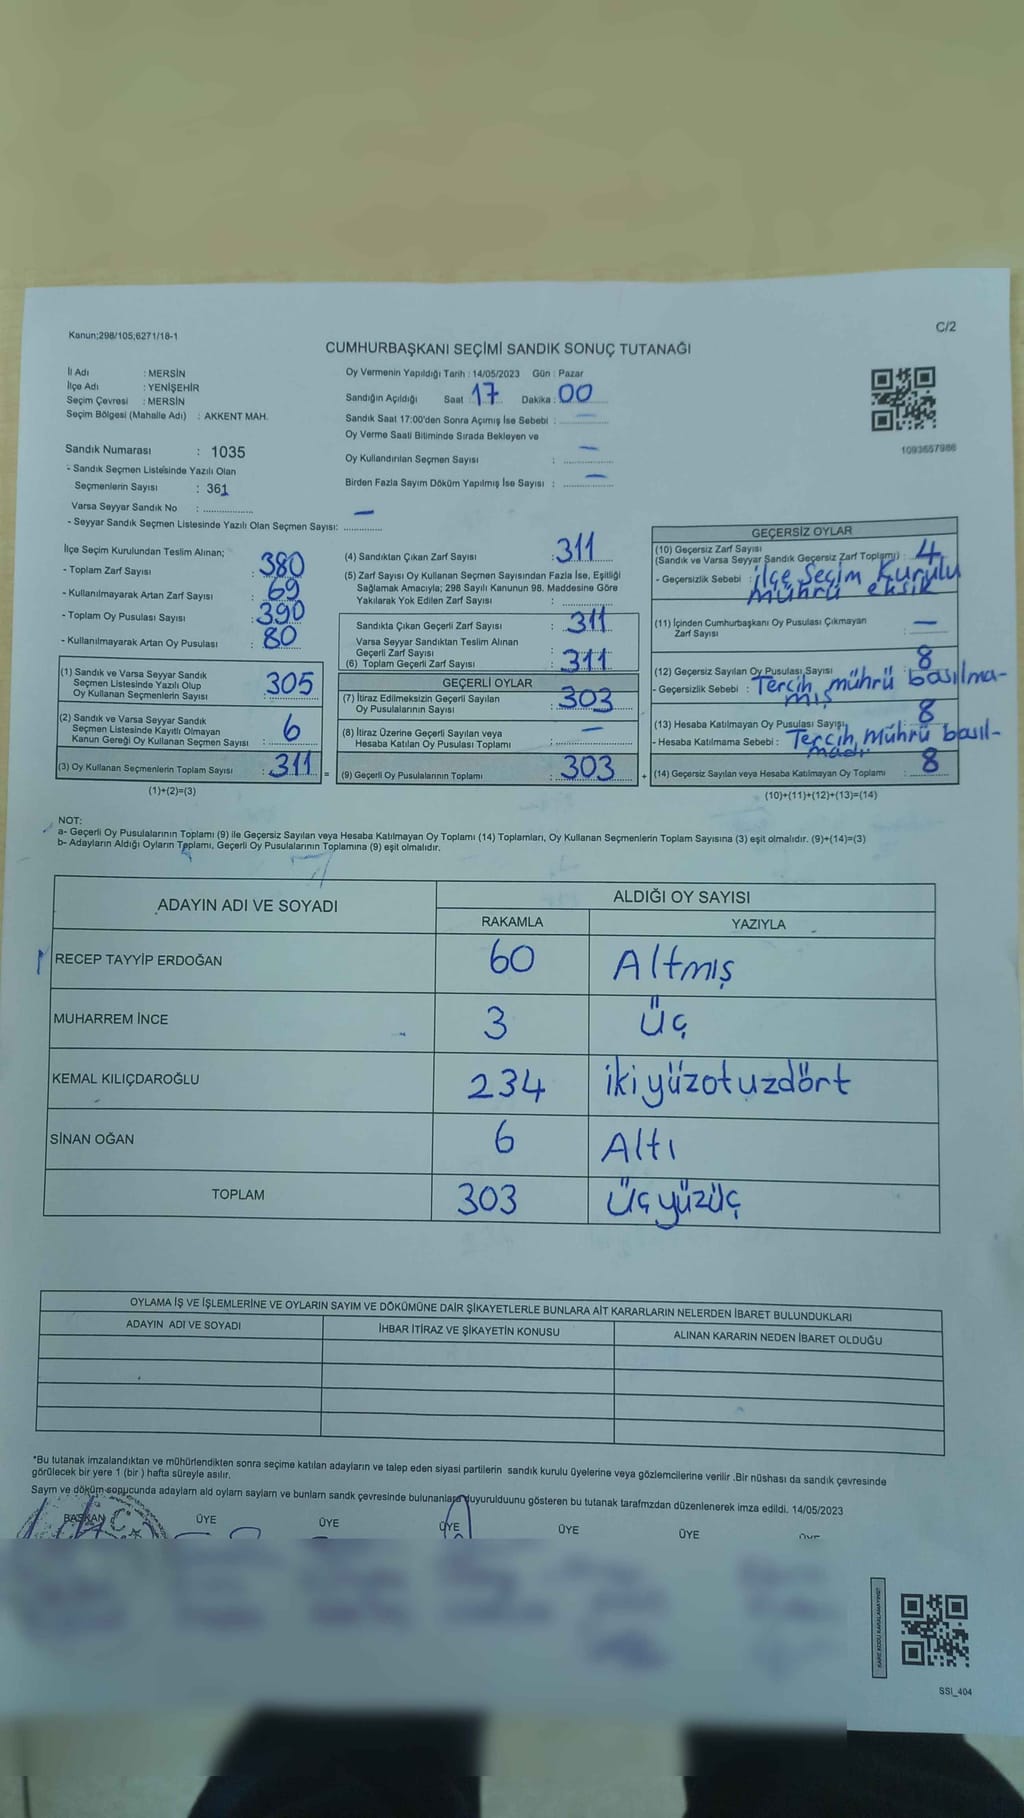 Kanun;298/105;6271/18-1
C/2
CUMHURBAŞKANI SEÇİMİ SANDIK SONUÇ TUTANAĞI
İl Adı : MERSİN
İlçe Adı : YENİŞEHİR
Seçim Çevresi : MERSİN
Seçim Bölgesi (Mahalle Adı) : AKKENT MAH.
Sandık Numarası : 1035
- Sandık Seçmen Listesinde Yazılı Olan
Seçmenlerin Sayısı : 361
Varsa Seyyar Sandık No : —
- Seyyar Sandık Seçmen Listesinde Yazılı Olan Seçmen Sayısı:
Oy Vermenin Yapıldığı Tarih : 14/05/2023 Gün : Pazar
Sandığın Açıldığı Saat : 17 Dakika : 00
Sandık Saat 17:00'den Sonra Açımış İse Sebebi : —
Oy Verme Saati Bitiminde Sırada Bekleyen ve
Oy Kullandırılan Seçmen Sayısı : —
Birden Fazla Sayım Döküm Yapılmış İse Sayısı : —
1093657986
İlçe Seçim Kurulundan Teslim Alınan;
- Toplam Zarf Sayısı : 380
- Kullanılmayarak Artan Zarf Sayısı : 69
- Toplam Oy Pusulası Sayısı : 390
- Kullanılmayarak Artan Oy Pusulası : 80
(1) Sandık ve Varsa Seyyar Sandık
Seçmen Listesinde Yazılı Olup
Oy Kullanan Seçmenlerin Sayısı : 305
(2) Sandık ve Varsa Seyyar Sandık
Seçmen Listesinde Kayıtlı Olmayan
Kanun Gereği Oy Kullanan Seçmen Sayısı : 6
(3) Oy Kullanan Seçmenlerin Toplam Sayısı : 311 =
(1)+(2)=(3)
(4) Sandıktan Çıkan Zarf Sayısı : 311
(5) Zarf Sayısı Oy Kullanan Seçmen Sayısından Fazla İse, Eşitliği
Sağlamak Amacıyla; 298 Sayılı Kanunun 98. Maddesine Göre
Yakılarak Yok Edilen Zarf Sayısı :
Sandıkta Çıkan Geçerli Zarf Sayısı : 311
Varsa Seyyar Sandıktan Teslim Alınan
Geçerli Zarf Sayısı :
(6) Toplam Geçerli Zarf Sayısı : 311
GEÇERLİ OYLAR
(7) İtiraz Edilmeksizin Geçerli Sayılan
Oy Pusulalarının Sayısı : 303
(8) İtiraz Üzerine Geçerli Sayılan veya
Hesaba Katılan Oy Pusulası Toplamı : —
(9) Geçerli Oy Pusulalarının Toplamı : 303 +
GEÇERSİZ OYLAR
(10) Geçersiz Zarf Sayısı
(Sandık ve Varsa Seyyar Sandık Geçersiz Zarf Toplamı) : 4
- Geçersizlik Sebebi : ilçe Seçim Kurulu
Mührü eksik
(11) İçinden Cumhurbaşkanı Oy Pusulası Çıkmayan
Zarf Sayısı : —
(12) Geçersiz Sayılan Oy Pusulası Sayısı : 8
- Geçersizlik Sebebi : Tercih mührü basılma-
mış
(13) Hesaba Katılmayan Oy Pusulası Sayısı : 8
- Hesaba Katılmama Sebebi : Tercih Mührü basıl-
madı
(14) Geçersiz Sayılan veya Hesaba Katılmayan Oy Toplamı : 8
(10)+(11)+(12)+(13)=(14)
NOT:
a- Geçerli Oy Pusulalarının Toplamı (9) ile Geçersiz Sayılan veya Hesaba Katılmayan Oy Toplamı (14) Toplamları, Oy Kullanan Seçmenlerin Toplam Sayısına (3) eşit olmalıdır. (9)+(14)=(3)
b- Adayların Aldığı Oyların Toplamı, Geçerli Oy Pusulalarının Toplamına (9) eşit olmalıdır.
ADAYIN ADI VE SOYADI ALDIĞI OY SAYISI
RAKAMLA YAZIYLA
RECEP TAYYİP ERDOĞAN 60 Altmış
MUHARREM İNCE 3 Üç
KEMAL KILIÇDAROĞLU 234 ikiyüzotuzdört
SİNAN OĞAN 6 Altı
TOPLAM 303 Üçyüzüç
OYLAMA İŞ VE İŞLEMLERİNE VE OYLARIN SAYIM VE DÖKÜMÜNE DAİR ŞİKAYETLERLE BUNLARA AİT KARARLARIN NELERDEN İBARET BULUNDUKLARI
ADAYIN ADI VE SOYADI İHBAR İTİRAZ VE ŞİKAYETİN KONUSU ALINAN KARARIN NEDEN İBARET OLDUĞU
*Bu tutanak imzalandıktan ve mühürlendikten sonra seçime katılan adayların ve talep eden siyasi partilerin sandık kurulu üyelerine veya gözlemcilerine verilir .Bir nüshası da sandık çevresinde
görülecek bir yere 1 (bir ) hafta süreyle asılır.
Saym ve döküm sonucunda adaylarn ald oylarn saylarn ve bunlarn sandk çevresinde bulunanlara duyurulduunu gösteren bu tutanak tarafmzdan düzenlenerek imza edildi. 14/05/2023
BAŞKAN ÜYE ÜYE ÜYE ÜYE ÜYE
SSI_404